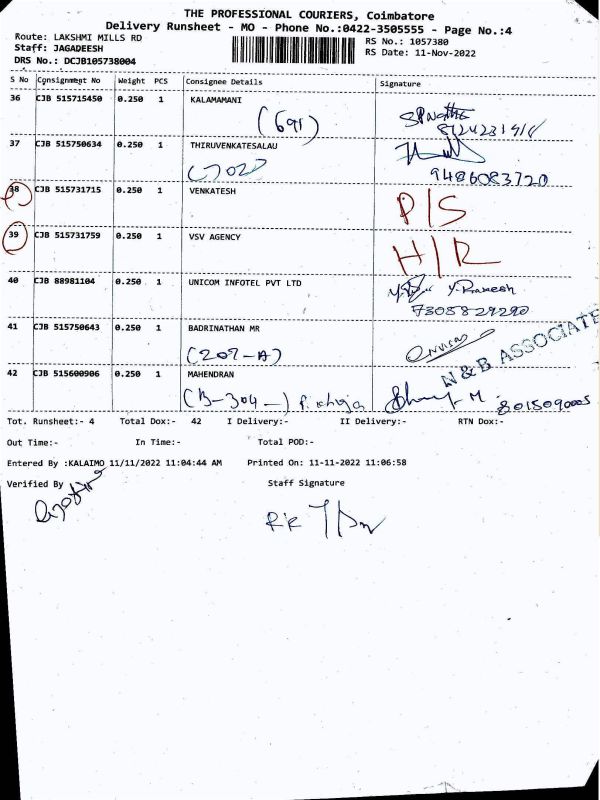 THE PROFESSIONAL COURIERS, Coimbatore
Delivery Runsheet - MO - Phone No.:0422-3505555 - Page No.:4
Route: LAKSHMI MILLS RD
Staff: JAGADEESH
DRS No.: DCJB105738004
RS No.: 1057380
RS Date: 11-Nov-2022
S No Consignment No Weight PCS Consignee Details Signature
36 CJB 515715450 0.250 1 KALAMAMANI
(691)
37 CJB 515750634 0.250 1 THIRUVENKATESALAU
9486083720
38 CJB 515731715 0.250 1 VENKATESH P/S
39 CJB 515731759 0.250 1 VSV AGENCY H/R
40 CJB 88981104 0.250 1 UNICOM INFOTEL PVT LTD Y. Ramesh
7305829290
41 CJB 515750643 0.250 1 BADRINATHAN MR
(207-A)
N & B ASSOCIATE
42 CJB 515600906 0.250 1 MAHENDRAN
(B-304-)
Tot. Runsheet:- 4 Total Dox:- 42 I Delivery:- II Delivery:- RTN Dox:-
Out Time:- In Time:- Total POD:-
Entered By :KALAIMO 11/11/2022 11:04:44 AM Printed On: 11-11-2022 11:06:58
Verified By Staff Signature